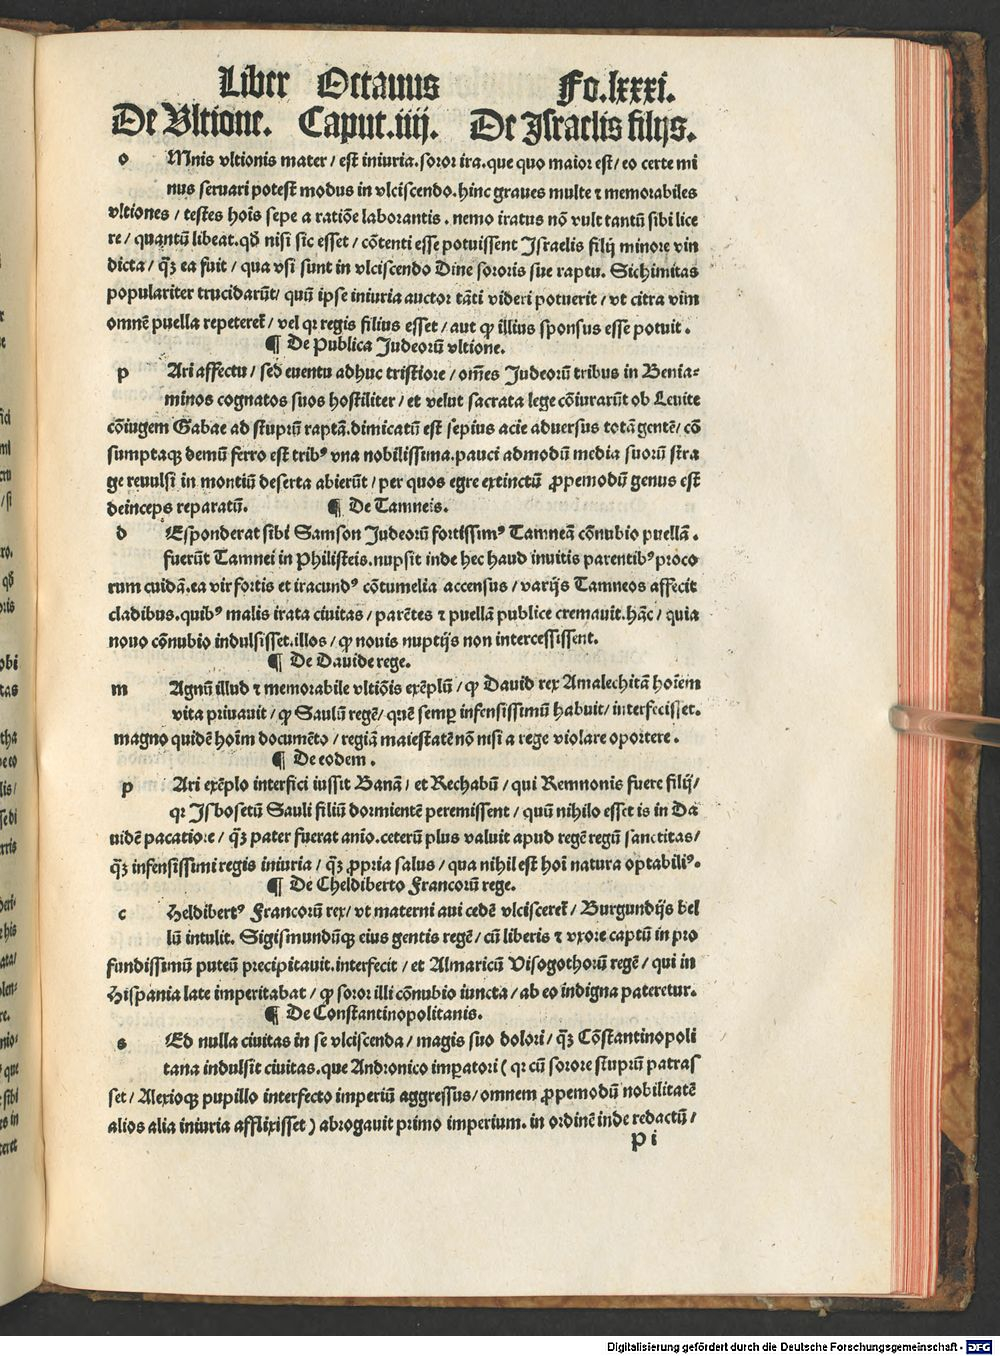 Liber Octauus Fo.lxxxi.
De Vltione. Caput.iiij. De Israelis filijs.
o Mnis vltionis mater / est iniuria.soror ira.que quo maior est/ eo certe mi
nus seruari potest modus in vlciscendo.hinc graues multe ⁊ memorabiles
vltiones / testes hoīs sepe a ratiōe laborantis . nemo iratus nō vult tantū sibi lice
re / quantū libeat.qđ nisi sic esset / cōtenti esse potuissent Israelis filij minore vin
dicta / qȝ̄ ea fuit / qua vsi sunt in vlciscendo Dine sororis sue raptu. Sichimitas
populariter trucidarūt/ quū ipse iniuria auctor tāti videri potuerit / vt citra vim
omnē puella repeteret̄ / vel qꝛ regis filius esset / aut ꝙ illius sponsus esse potuit .
¶ De Publica Judeorū vltione.
p Ari affectu / sed euentu adhuc tristiore / om̄es Judeorū tribus in Benia-
minos cognatos suos hostiliter / et velut sacrata lege cōiurarūt ob Leuite
cōiugem Gabae ad stuprū raptā.dimicatū est sepius acie aduersus totā gentē/ cō
sumptaqȝ demū ferro est tribꝰ vna nobilissima.pauci admodū media suorū stra
ge reuulsi in montiū deserta abierūt / per quos egre extinctū ꝓpemodū genus est
deinceps reparatū. ¶ De Tamneis.
d Esponderat sibi Samson Judeorū fortissimꝰ Tamneā cōnubio puellā .
fuerūt Tamnei in Philisteis.nupsit inde hec haud inuitis parentibꝰ proco
rum cuidā.ea vir fortis et iracundꝰ cōtumelia accensus / varijs Tamneos affecit
cladibus.quibꝰ malis irata ciuitas / parētes ⁊ puellā publice cremauit.hāc / quia
nouo cōnubio indulsisset.illos / ꝙ nouis nuptijs non intercessissent.
¶ De Dauide rege.
m Agnū illud ⁊ memorabile vltiōis exēplū / ꝙ Dauid rex Amalechitā hoīem
vita priuauit / ꝙ Saulū regē/ quē semꝑ infensissimū habuit / interfecisset.
magno quidē hoīm documēto / regiā maiestatē nō nisi a rege violare oportere .
¶ De eodem .
p Ari exēplo interfici iussit Banā / et Rechabū / qui Remnonis fuere filij/
qꝛ Isbosetū Sauli filiū dormientē peremissent / quū nihilo esset is in Da
uidē pacatiore / qȝ̄ pater fuerat anīo.ceterū plus valuit apud regē regū sanctitas/
qȝ̄ infensissimi regis iniuria / qȝ̄ ꝓpria salus / qua nihil est hoī natura optabiliꝰ.
¶ De Cheldiberto Francorū rege.
c Heldibertꝰ Francorū rex/ vt materni aui cedē vlcisceret̄ / Burgundijs bel
lū intulit. Sigismundūqȝ eius gentis regē / cū liberis ⁊ vxore captū in pro
fundissimū puteū precipitauit.interfecit / et Almaricū Visogothorū regē / qui in
Hispania late imperitabat / ꝙ soror illi cōnubio iuncta / ab eo indigna pateretur.
¶ De Constantinopolitanis.
s Ed nulla ciuitas in se vlciscenda / magis suo dolori / qȝ̄ Cōstantinopoli
tana indulsit ciuitas.que Andronico imꝑatori ( qꝛ cū sorore stuprū patras
set / Alexioqȝ pupillo interfecto imperiū aggressus/ omnem ꝓpemodū nobilitatē
alios alia iniuria afflixisset ) abrogauit primo imperium. in ordinē inde redactū /
P i
Digitalisierung gefördert durch die Deutsche Forschungsgemeinschaft - DFG